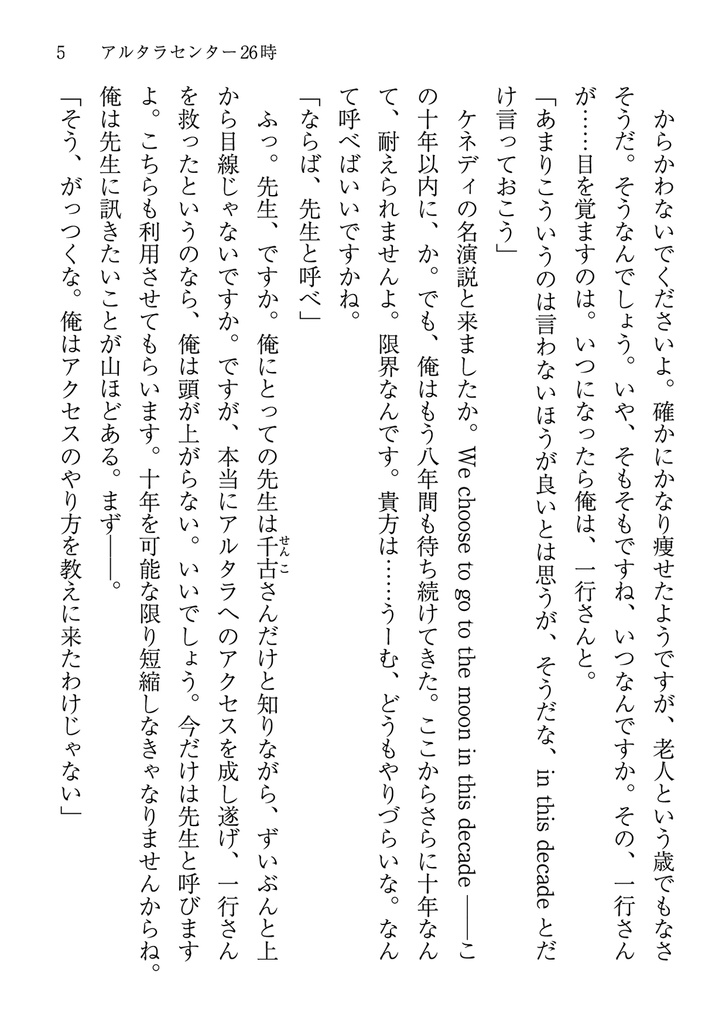 5　アルタラセンター26時
　からかわないでくださいよ。確かにかなり痩せたようですが、老人という歳でもなさ
そうだ。そうなんでしょう。いや、そもそもですね、いつなんですか。その、一行さん
が……目を覚ますのは。いつになったら俺は、一行さんと。
「あまりこういうのは言わないほうが良いとは思うが、そうだな、in this decade とだ
け言っておこう」
　ケネディの名演説と来ましたか。We choose to go to the moon in this decade ――こ
の十年以内に、か。でも、俺はもう八年間も待ち続けてきた。ここからさらに十年なん
て、耐えられませんよ。限界なんです。貴方は……うーむ、どうもやりづらいな。なん
て呼べばいいですかね。
「ならば、先生と呼べ」
　ふっ。先生、ですか。俺にとっての先生は千古さんだけと知りながら、ずいぶんと上
せんこ
から目線じゃないですか。ですが、本当にアルタラへのアクセスを成し遂げ、一行さん
を救ったというのなら、俺は頭が上がらない。いいでしょう。今だけは先生と呼びます
よ。こちらも利用させてもらいます。十年を可能な限り短縮しなきゃなりませんからね。
俺は先生に訊きたいことが山ほどある。まず――。
「そう、がっつくな。俺はアクセスのやり方を教えに来たわけじゃない」